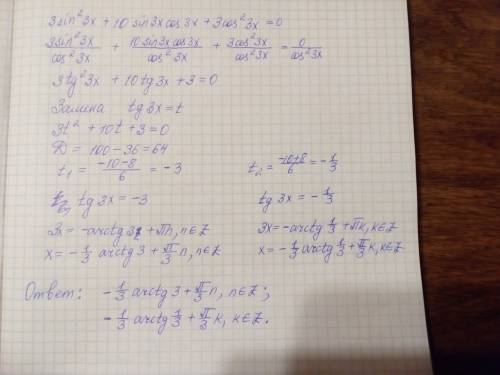 3sin²3x + 10 sin3x cos3x + 3cos²3x = 0
3sin²3x/cos²3x + 10sin3x cos3x/cos²3x + 3cos²3x/cos²3x = 0/cos²3x
3tg²3x + 10tg3x + 3 = 0
Замена tg3x = t
3t² + 10t + 3 = 0
D = 100 - 36 = 64
t₁ = (-10-8)/6 = -3 t₂ = (-10+8)/6 = -1/3
tg3x = -3 tg3x = -1/3
3x = -arctg3 + πn, n∈Z 3x = -arctg 1/3 + πk, k∈Z
x = -1/3 arctg3 + π/3 n, n∈Z x = -1/3 arctg 1/3 + π/3 k, k∈Z
Ответ: -1/3 arctg3 + π/3 n, n∈Z;
-1/3 arctg 1/3 + π/3 k, k∈Z.